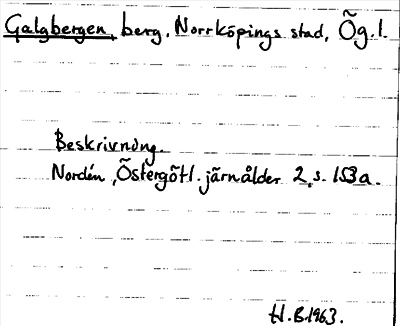 Galgbergen, berg, Norrköpings stad, Ög.l.
Beskrivning.
Nordén, Östergötl. järnålder 2, s. 153a.
H.B.1963.